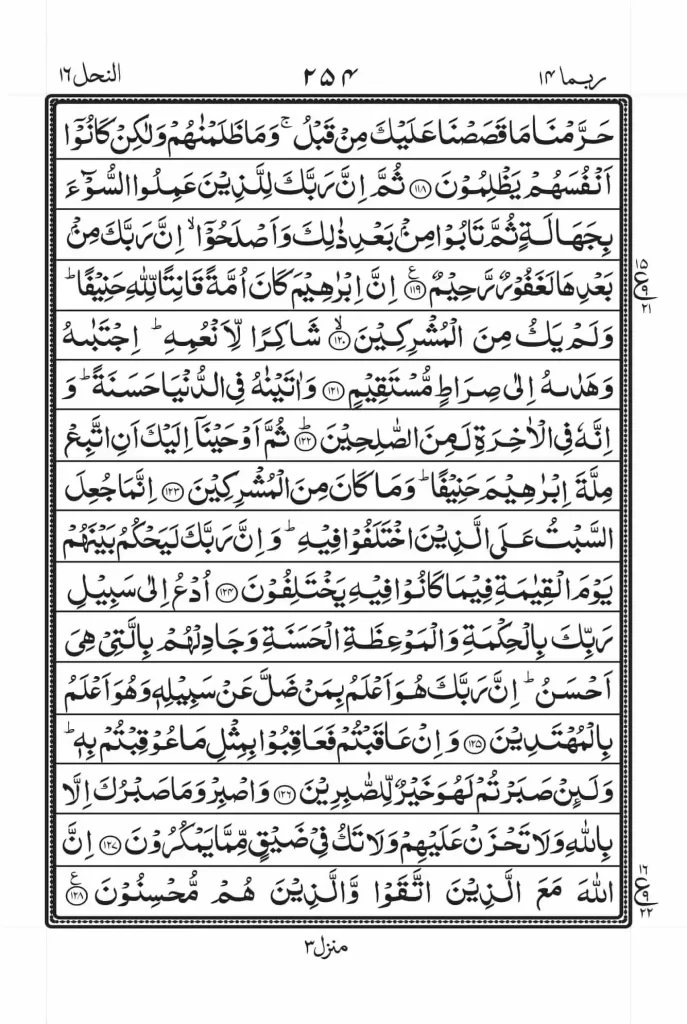 ربما ١٤ ٢٥٤ النحل ١٦
حَرَّمْنَا مَا قَصَصْنَا عَلَيْكَ مِنْ قَبْلُ ۚ وَمَا ظَلَمْنٰهُمْ وَلٰكِنْ كَانُوْۤا
اَنْفُسَهُمْ يَظْلِمُوْنَ ﴿۱۱۸﴾ ثُمَّ اِنَّ رَبَّكَ لِلَّذِيْنَ عَمِلُوا السُّوْٓءَ
بِجَهَالَةٍ ثُمَّ تَابُوْا مِنْۢ بَعْدِ ذٰلِكَ وَاَصْلَحُوْۤا ۙ اِنَّ رَبَّكَ مِنْۢ
بَعْدِهَا لَغَفُوْرٌ رَّحِيْمٌ ﴿۱۱۹﴾ ع اِنَّ اِبْرٰهِيْمَ كَانَ اُمَّةً قَانِتًا لِّلّٰهِ حَنِيْفًا ؕ
١٥ ع ٩ ٢١
وَلَمْ يَكُ مِنَ الْمُشْرِكِيْنَ ۙ﴿۱۲۰﴾ شَاكِرًا لِّاَنْعُمِهٖ ؕ اِجْتَبٰىهُ
وَهَدٰىهُ اِلٰى صِرَاطٍ مُّسْتَقِيْمٍ ﴿۱۲۱﴾ وَاٰتَيْنٰهُ فِى الدُّنْيَا حَسَنَةً ؕ وَ
اِنَّهٗ فِى الْاٰخِرَةِ لَمِنَ الصّٰلِحِيْنَ ؕ﴿۱۲۲﴾ ثُمَّ اَوْحَيْنَاۤ اِلَيْكَ اَنِ اتَّبِعْ
مِلَّةَ اِبْرٰهِيْمَ حَنِيْفًا ؕ وَمَا كَانَ مِنَ الْمُشْرِكِيْنَ ﴿۱۲۳﴾ اِنَّمَا جُعِلَ
السَّبْتُ عَلَى الَّذِيْنَ اخْتَلَفُوْا فِيْهِ ؕ وَاِنَّ رَبَّكَ لَيَحْكُمُ بَيْنَهُمْ
يَوْمَ الْقِيٰمَةِ فِيْمَا كَانُوْا فِيْهِ يَخْتَلِفُوْنَ ﴿۱۲۴﴾ اُدْعُ اِلٰى سَبِيْلِ
رَبِّكَ بِالْحِكْمَةِ وَالْمَوْعِظَةِ الْحَسَنَةِ وَجَادِلْهُمْ بِالَّتِىْ هِىَ
اَحْسَنُ ؕ اِنَّ رَبَّكَ هُوَ اَعْلَمُ بِمَنْ ضَلَّ عَنْ سَبِيْلِهٖ وَهُوَ اَعْلَمُ
بِالْمُهْتَدِيْنَ ﴿۱۲۵﴾ وَاِنْ عَاقَبْتُمْ فَعَاقِبُوْا بِمِثْلِ مَا عُوْقِبْتُمْ بِهٖ ؕ
وَلَئِنْ صَبَرْتُمْ لَهُوَ خَيْرٌ لِّلصّٰبِرِيْنَ ﴿۱۲۶﴾ وَاصْبِرْ وَمَا صَبْرُكَ اِلَّا
بِاللّٰهِ وَلَا تَحْزَنْ عَلَيْهِمْ وَلَا تَكُ فِىْ ضَيْقٍ مِّمَّا يَمْكُرُوْنَ ﴿۱۲۷﴾ اِنَّ
اللّٰهَ مَعَ الَّذِيْنَ اتَّقَوْا وَّالَّذِيْنَ هُمْ مُّحْسِنُوْنَ ﴿۱۲۸﴾ ع
١٦ ع ٩ ٢٢
منزل ٣